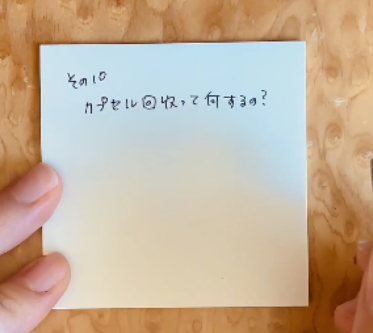 その10
カプセル回収って何するの?